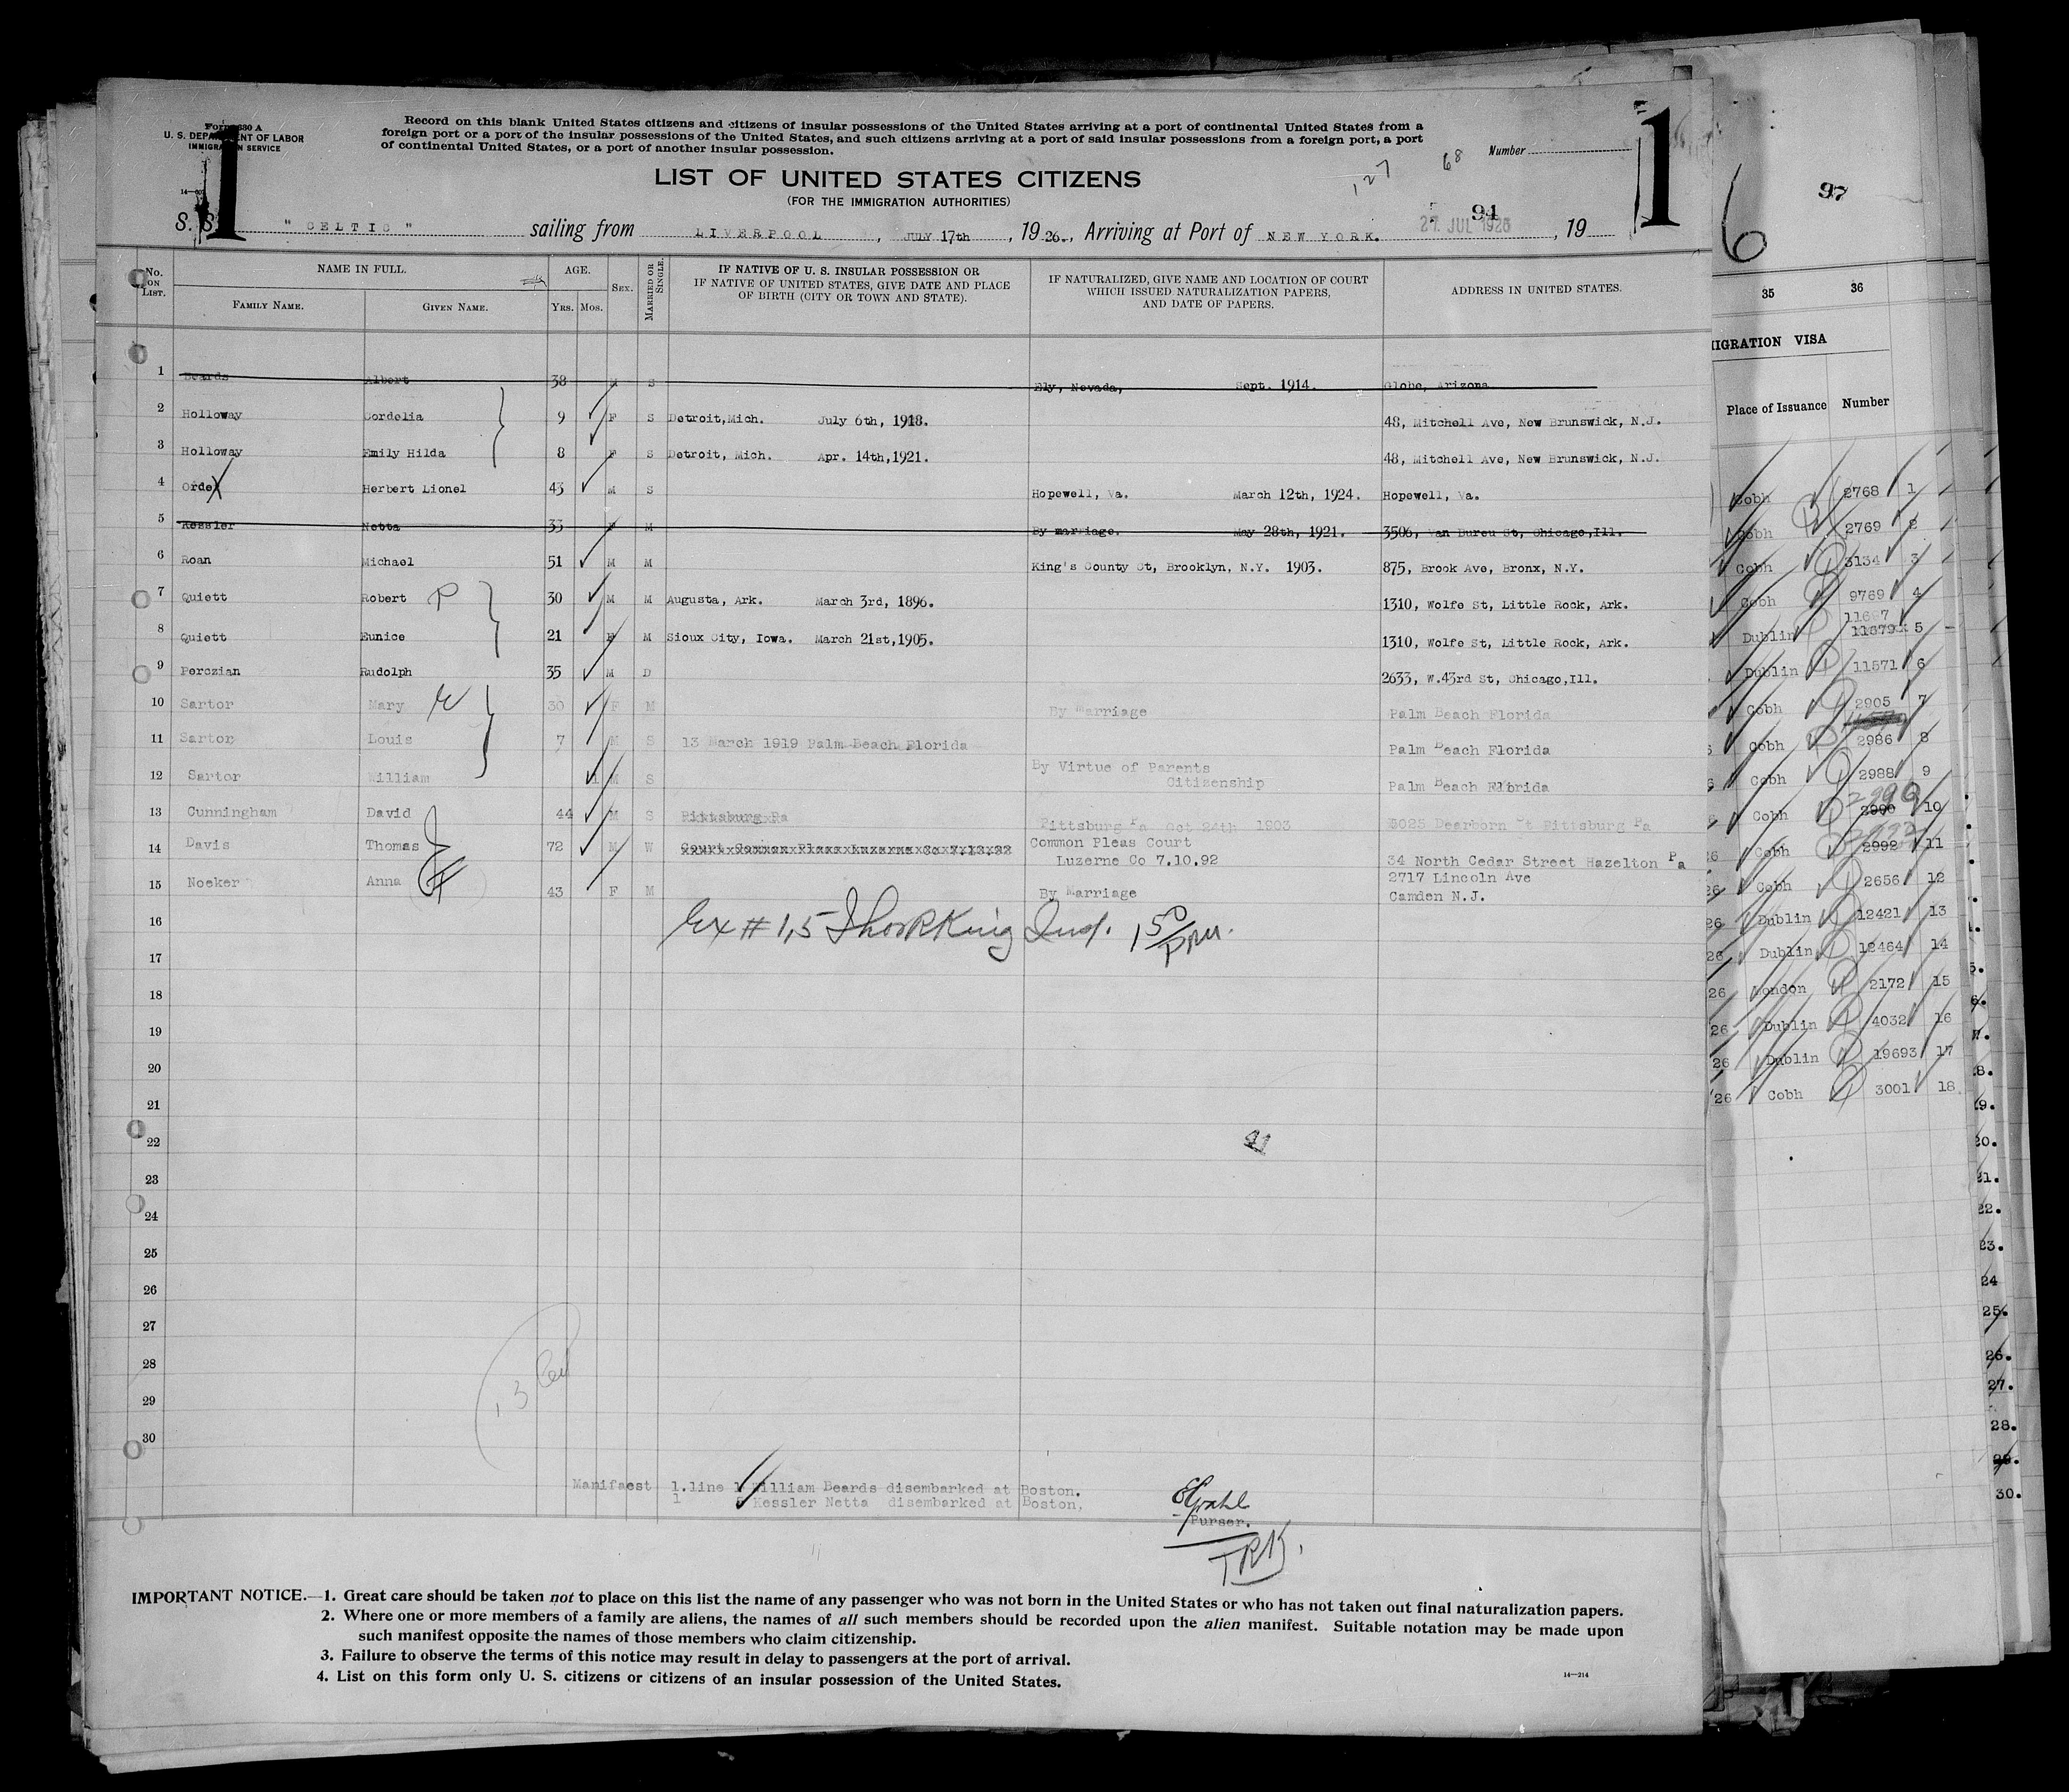 Form 630 A
U. S. DEPARTMENT OF LABOR
IMMIGRATION SERVICE
Record on this blank United States citizens and citizens of insular possessions of the United States arriving at a port of continental United States from a
foreign port or a port of the insular possessions of the United States, and such citizens arriving at a port of said insular possessions from a foreign port, a port
of continental United States, or a port of another insular possession.
Number
1 1
127 68
LIST OF UNITED STATES CITIZENS
(FOR THE IMMIGRATION AUTHORITIES)
94
S. S. "CELTIC" sailing from LIVERPOOL, JULY 17th, 1926., Arriving at Port of NEW YORK. 27 JUL 1926, 19
No. ON LIST. NAME IN FULL. AGE. SEX. MARRIED OR SINGLE. IF NATIVE OF U. S. INSULAR POSSESSION OR IF NATIVE OF UNITED STATES, GIVE DATE AND PLACE OF BIRTH (CITY OR TOWN AND STATE). IF NATURALIZED, GIVE NAME AND LOCATION OF COURT WHICH ISSUED NATURALIZATION PAPERS, AND DATE OF PAPERS. ADDRESS IN UNITED STATES.
FAMILY NAME. GIVEN NAME. YRS. MOS.
1 Beards Albert 38 M S Ely, Nevada, Sept. 1914. Globe, Arizona
2 Holloway Cordelia 9 F S Detroit,Mich. July 6th, 1918. 48, Mitchell Ave, New Brunswick, N.J.
3 Holloway Emily Hilda 8 F S Detroit, Mich. Apr. 14th,1921. 48, Mitchell Ave, New Brunswick, N.J.
4 Orde Herbert Lionel 43 M S Hopewell, Va. March 12th, 1924. Hopewell, Va.
5 Kessler Netta 33 F M By marriage. May 28th, 1921. 3506, Van Bureu St, Chicago,Ill.
6 Roan Michael 51 M M King's County Ct, Brooklyn, N.Y. 1903. 875, Brook Ave, Bronx, N.Y.
7 Quiett Robert P 30 M M Augusta, Ark. March 3rd, 1896. 1310, Wolfe St, Little Rock, Ark.
8 Quiett Eunice 21 F M Sioux City, Iowa. March 21st,1905. 1310, Wolfe St, Little Rock, Ark.
9 Perczian Rudolph 35 M D 2633, W.43rd St, Chicago,Ill.
10 Sartor Mary 30 F M By Marriage Palm Beach Florida
11 Sartor Louis 7 M S 13 March 1919 Palm Beach Florida Palm Beach Florida
12 Sartor William 1 M S By Virtue of Parents Citizenship Palm Beach Florida
13 Cunningham David 44 M S Pittsburg Pa Pittsburg Pa Oct 24th 1903 3025 Dearborn St Pittsburg Pa
14 Davis Thomas 72 M W Court Common Pleas Luzerne Co 7.13.92 Common Pleas Court Luzerne Co 7.10.92 34 North Cedar Street Hazelton Pa
15 Noeker Anna 43 F M By Marriage 2717 Lincoln Ave Camden N.J.
16
17
18
19
20
21
22
23
24
25
26
27
28
29
30
41
Manifaest 1.line 1 William Beards disembarked at Boston.
1 5 Kessler Netta disembarked at Boston,
Purser.
IMPORTANT NOTICE.—1. Great care should be taken not to place on this list the name of any passenger who was not born in the United States or who has not taken out final naturalization papers.
2. Where one or more members of a family are aliens, the names of all such members should be recorded upon the alien manifest. Suitable notation may be made upon
such manifest opposite the names of those members who claim citizenship.
3. Failure to observe the terms of this notice may result in delay to passengers at the port of arrival.
4. List on this form only U. S. citizens or citizens of an insular possession of the United States.
14—214
6 97
35 36
IGRATION VISA
Place of Issuance Number
Cobh 2768 1
Cobh 2769 2
Cobh 3134 3
Cobh 9769 4
11697
Dublin 11679 5
Dublin 11571 6
Cobh 2905 7
Cobh 2986 8
Cobh 2988 9
Cobh 2990 10
Cobh 2992 11
26 Cobh 2656 12
26 Dublin 12421 13
26 Dublin 12464 14
26 London 2172 15
26 Dublin 4032 16
26 Dublin 19693 17
26 Cobh 3001 18
20.
21.
22.
23.
24
25.
26.
27.
28.
29.
30.